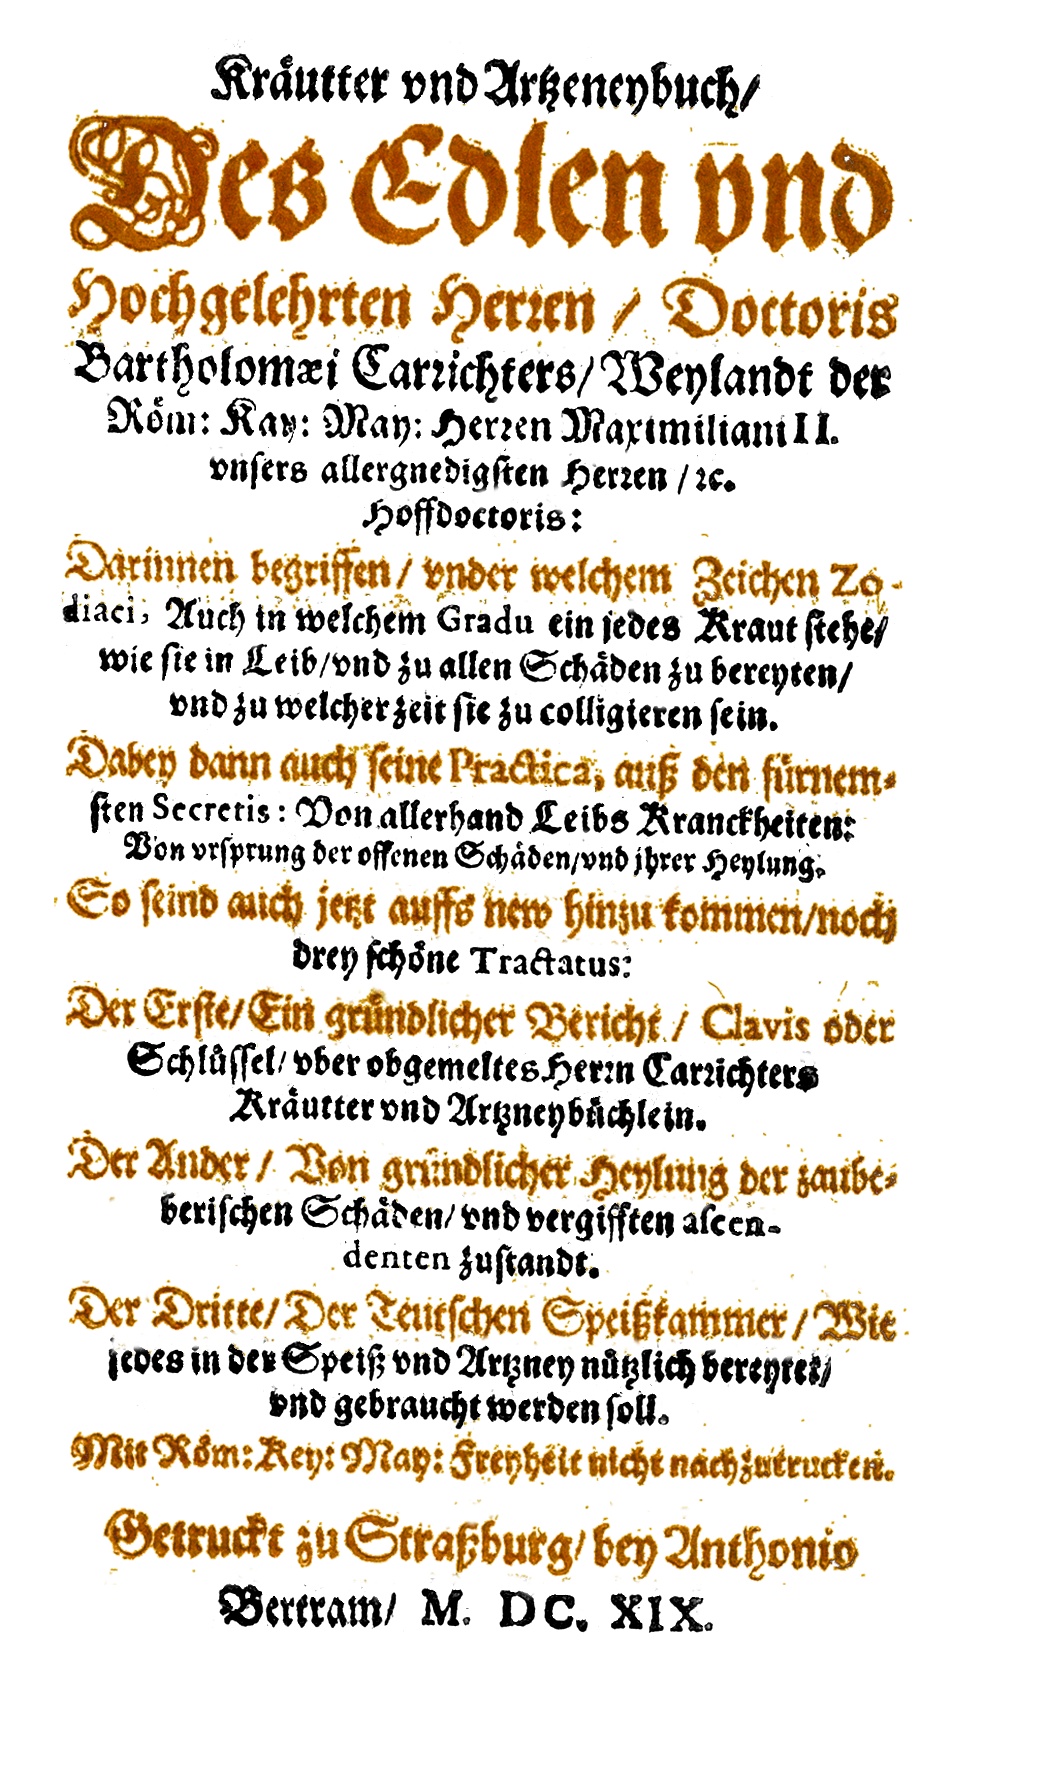 Kräutter vnd Artzeneybuch/
Des Edlen vnd
Hochgelehrten Herren / Doctoris
Bartholomæi Carrichters/ Weylandt der
Röm: Kay: May: Herren Maximiliani II.
vnsers allergnedigsten Herren / ꝛc.
Hoffdoctoris:
Darinnen begriffen / vnder welchem Zeichen Zo-
diaci, Auch in welchem Gradu ein jedes Kraut stehe/
wie sie in Leib/vnd zu allen Schäden zu bereyten/
vnd zu welcher zeit sie zu colligieren sein.
Dabey dann auch seine Practica, auß den fürnem-
sten Secretis: Von allerhand Leibs Kranckheiten:
Von vrsprung der offenen Schäden/vnd jhrer Heylung.
So seind auch jetzt auffs new hinzu kommen/noch
drey schöne Tractatus:
Der Erste/ Ein gründlicher Bericht / Clavis oder
Schlüssel/ vber obgemeltes Herrn Carrichters
Kräutter vnd Artzneybüchlein.
Der Ander / Von gründlicher Heylung der zaube-
berischen Schäden/ vnd vergifften ascen-
denten zustandt.
Der Dritte/ Der Teutschen Speißkammer / Wie
jedes in der Speiß vnd Artzney nützlich bereytet/
vnd gebraucht werden soll.
Mit Röm: Key: May: Freyheit nicht nachzutrucken.
Getruckt zu Straßburg/ bey Anthonio
Bertram/ M. DC. XIX.